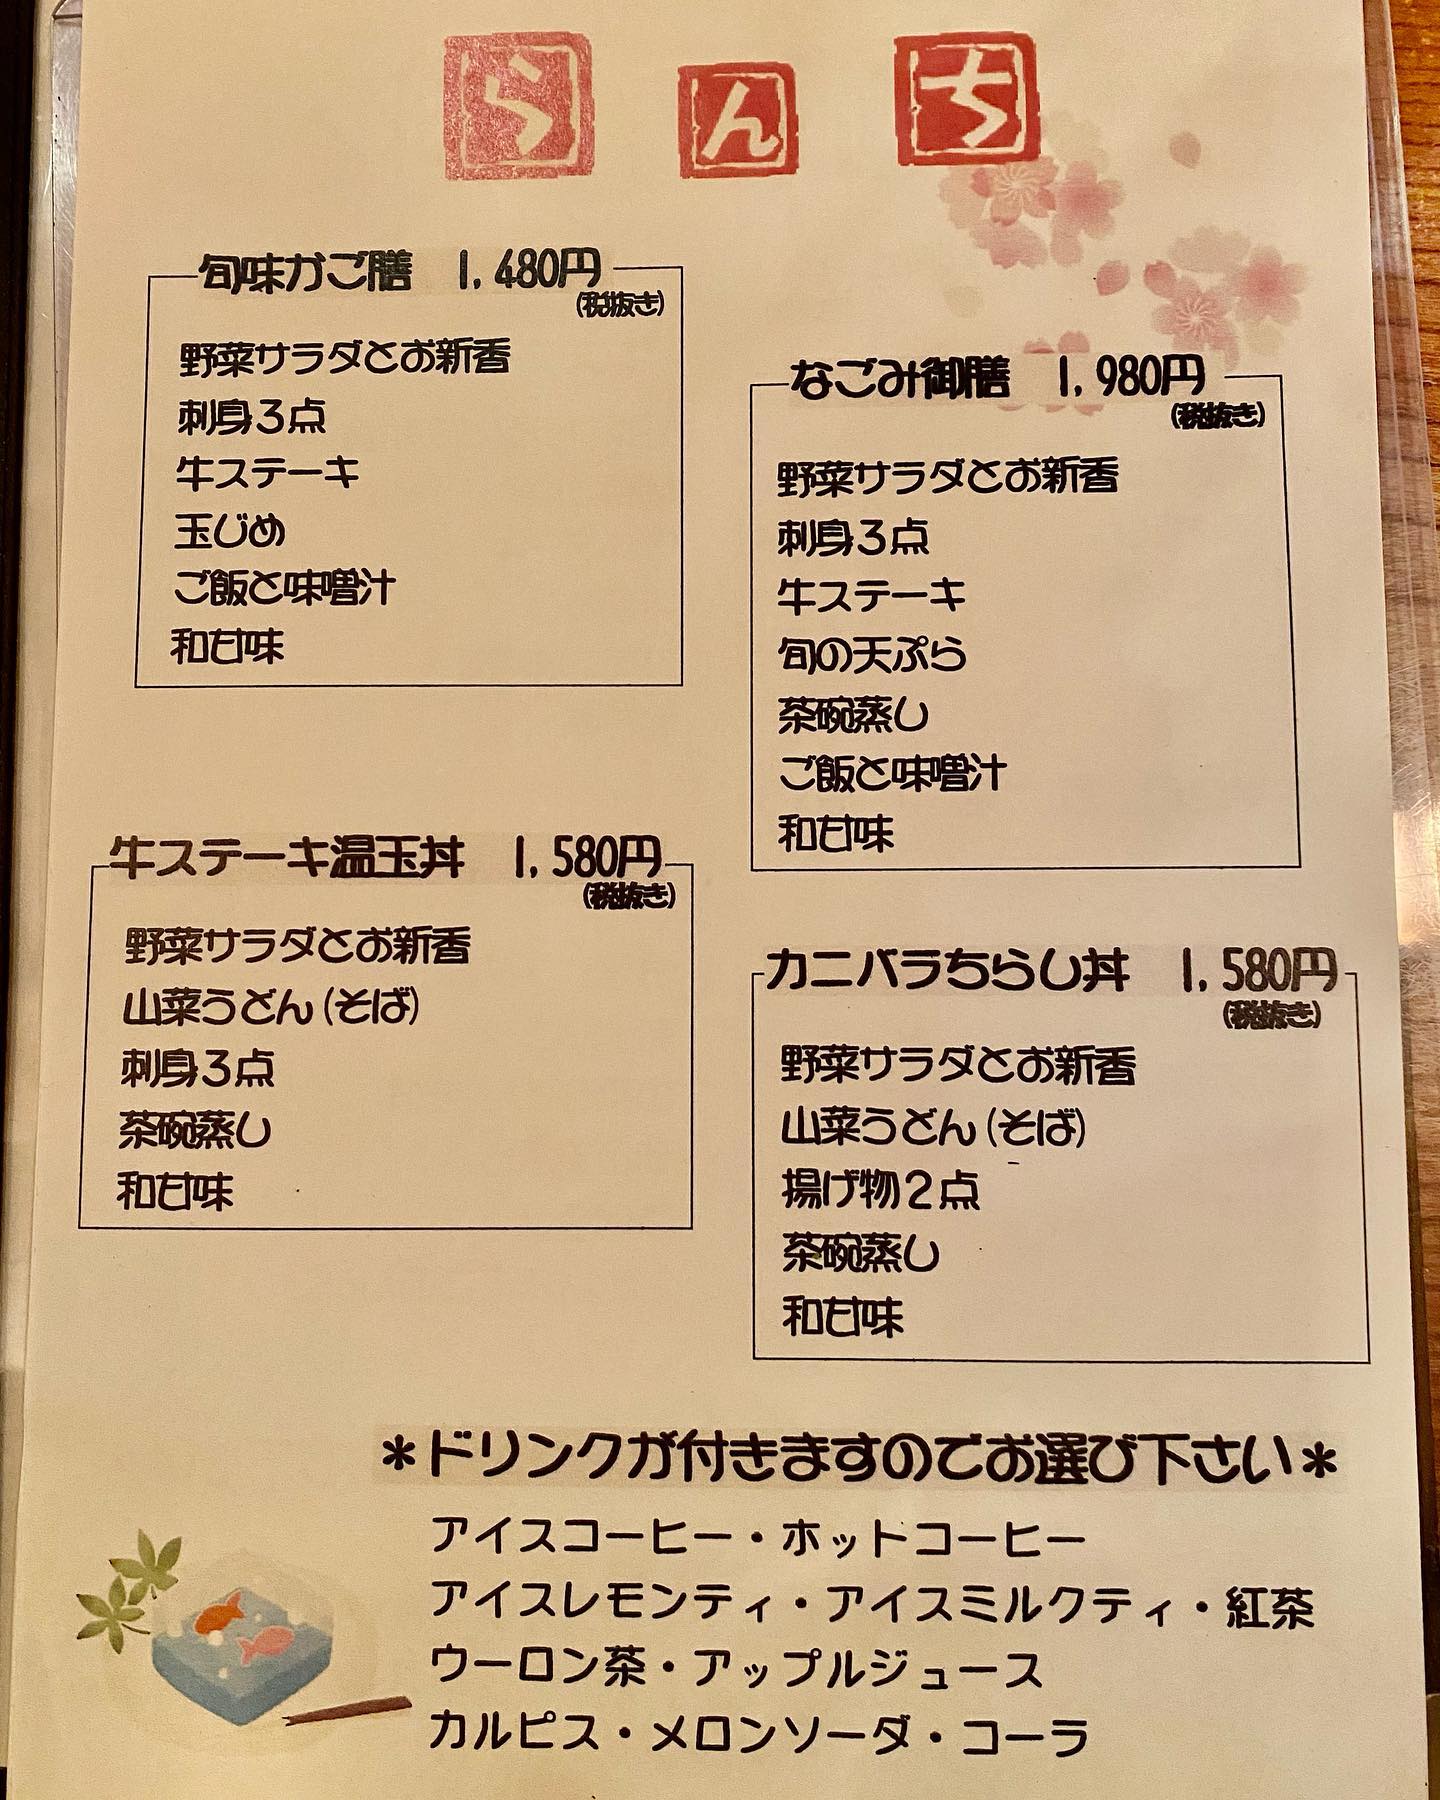 らんち
旬味かご膳 1,480円
(税抜き)
野菜サラダとお新香
刺身3点
牛ステーキ
玉じめ
ご飯と味噌汁
和甘味
なごみ御膳 1,980円
(税抜き)
野菜サラダとお新香
刺身3点
牛ステーキ
旬の天ぷら
茶碗蒸し
ご飯と味噌汁
和甘味
牛ステーキ温玉丼 1,580円
(税抜き)
野菜サラダとお新香
山菜うどん(そば)
刺身3点
茶碗蒸し
和甘味
カニバラちらし丼 1,580円
(税抜き)
野菜サラダとお新香
山菜うどん(そば)
揚げ物2点
茶碗蒸し
和甘味
*ドリンクが付きますのでお選び下さい*
アイスコーヒー・ホットコーヒー
アイスレモンティ・アイスミルクティ・紅茶
ウーロン茶・アップルジュース
カルピス・メロンソーダ・コーラ